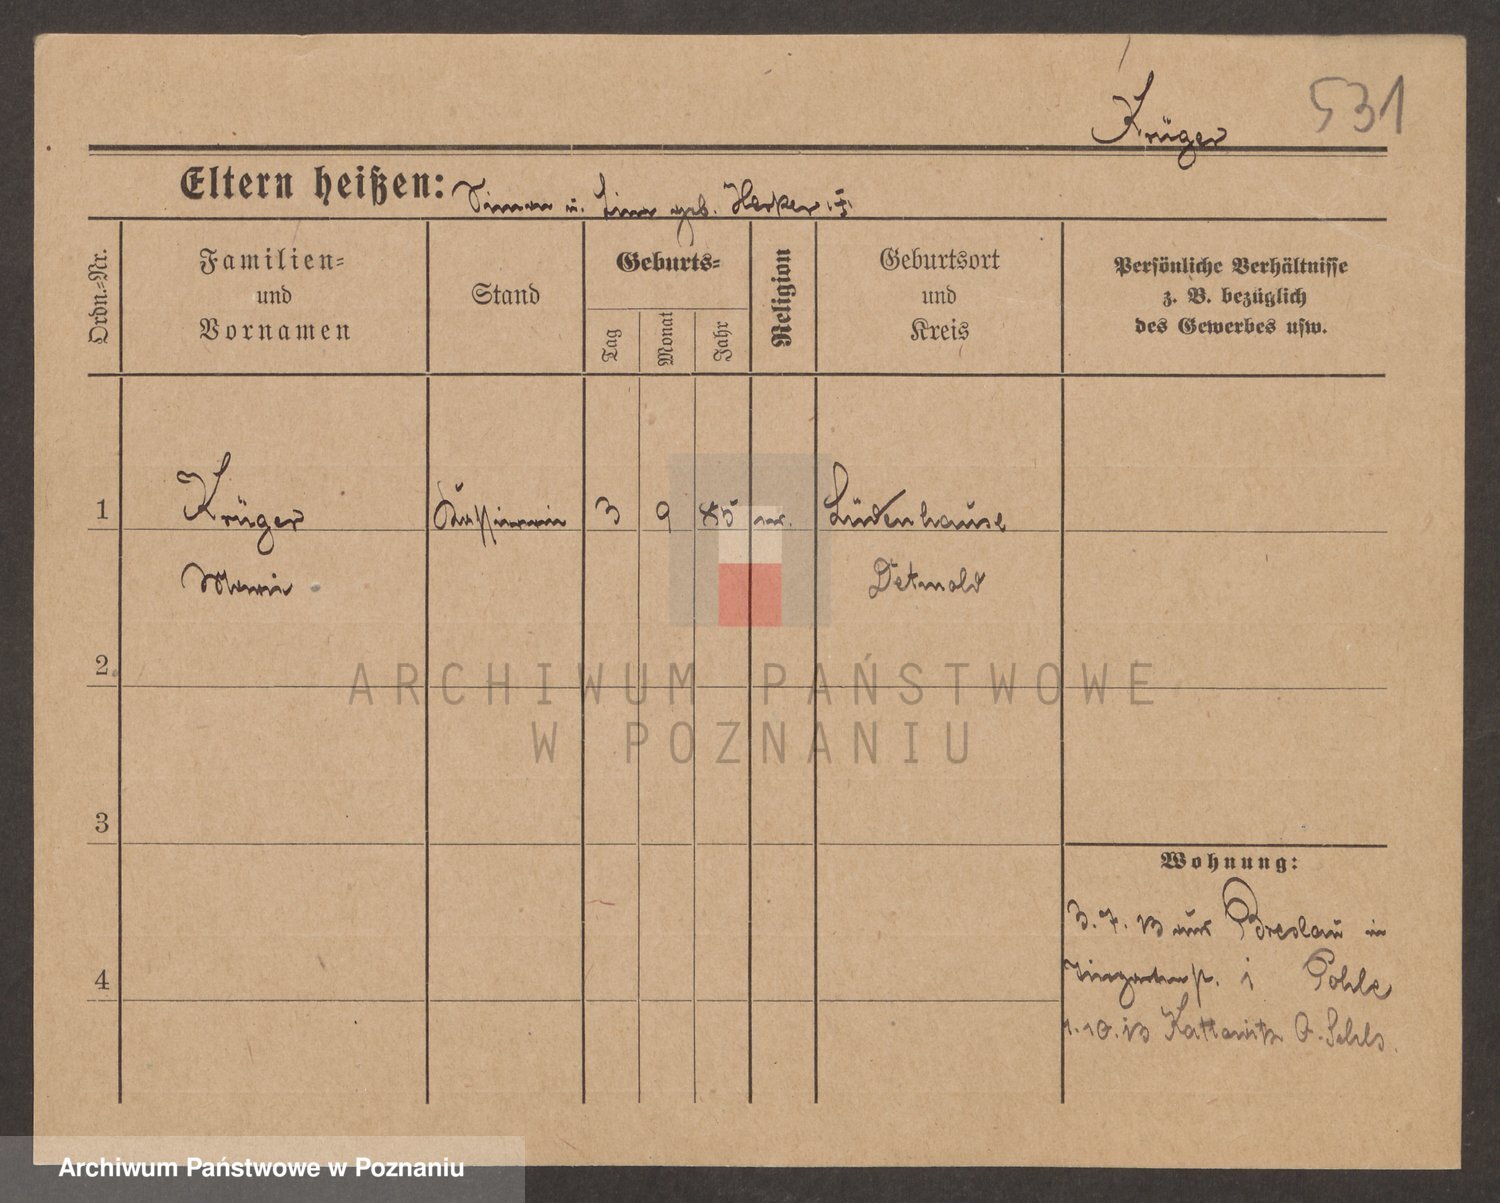 Krüger 531
Eltern heißen: Simon u. Line geb. Herker
Ordn.-Nr.
Familien-
und
Vornamen
Stand
Geburts-
Tag
Monat
Jahr
Religion
Geburtsort
und
Kreis
Persönliche Verhältnisse
z. B. bezüglich
des Gewerbes usw.
1 Krüger Kassiererin 3 9 85 Lüdenhause
Marie Detmold
2
3
4
Wohnung:
3. 7. 13 aus Breslau in
Tiergartenst. 1 Pohle
1. 10. 13 Kattowitz O. Schls.
ARCHIWUM PAŃSTWOWE
W POZNANIU
Archiwum Państwowe w Poznaniu